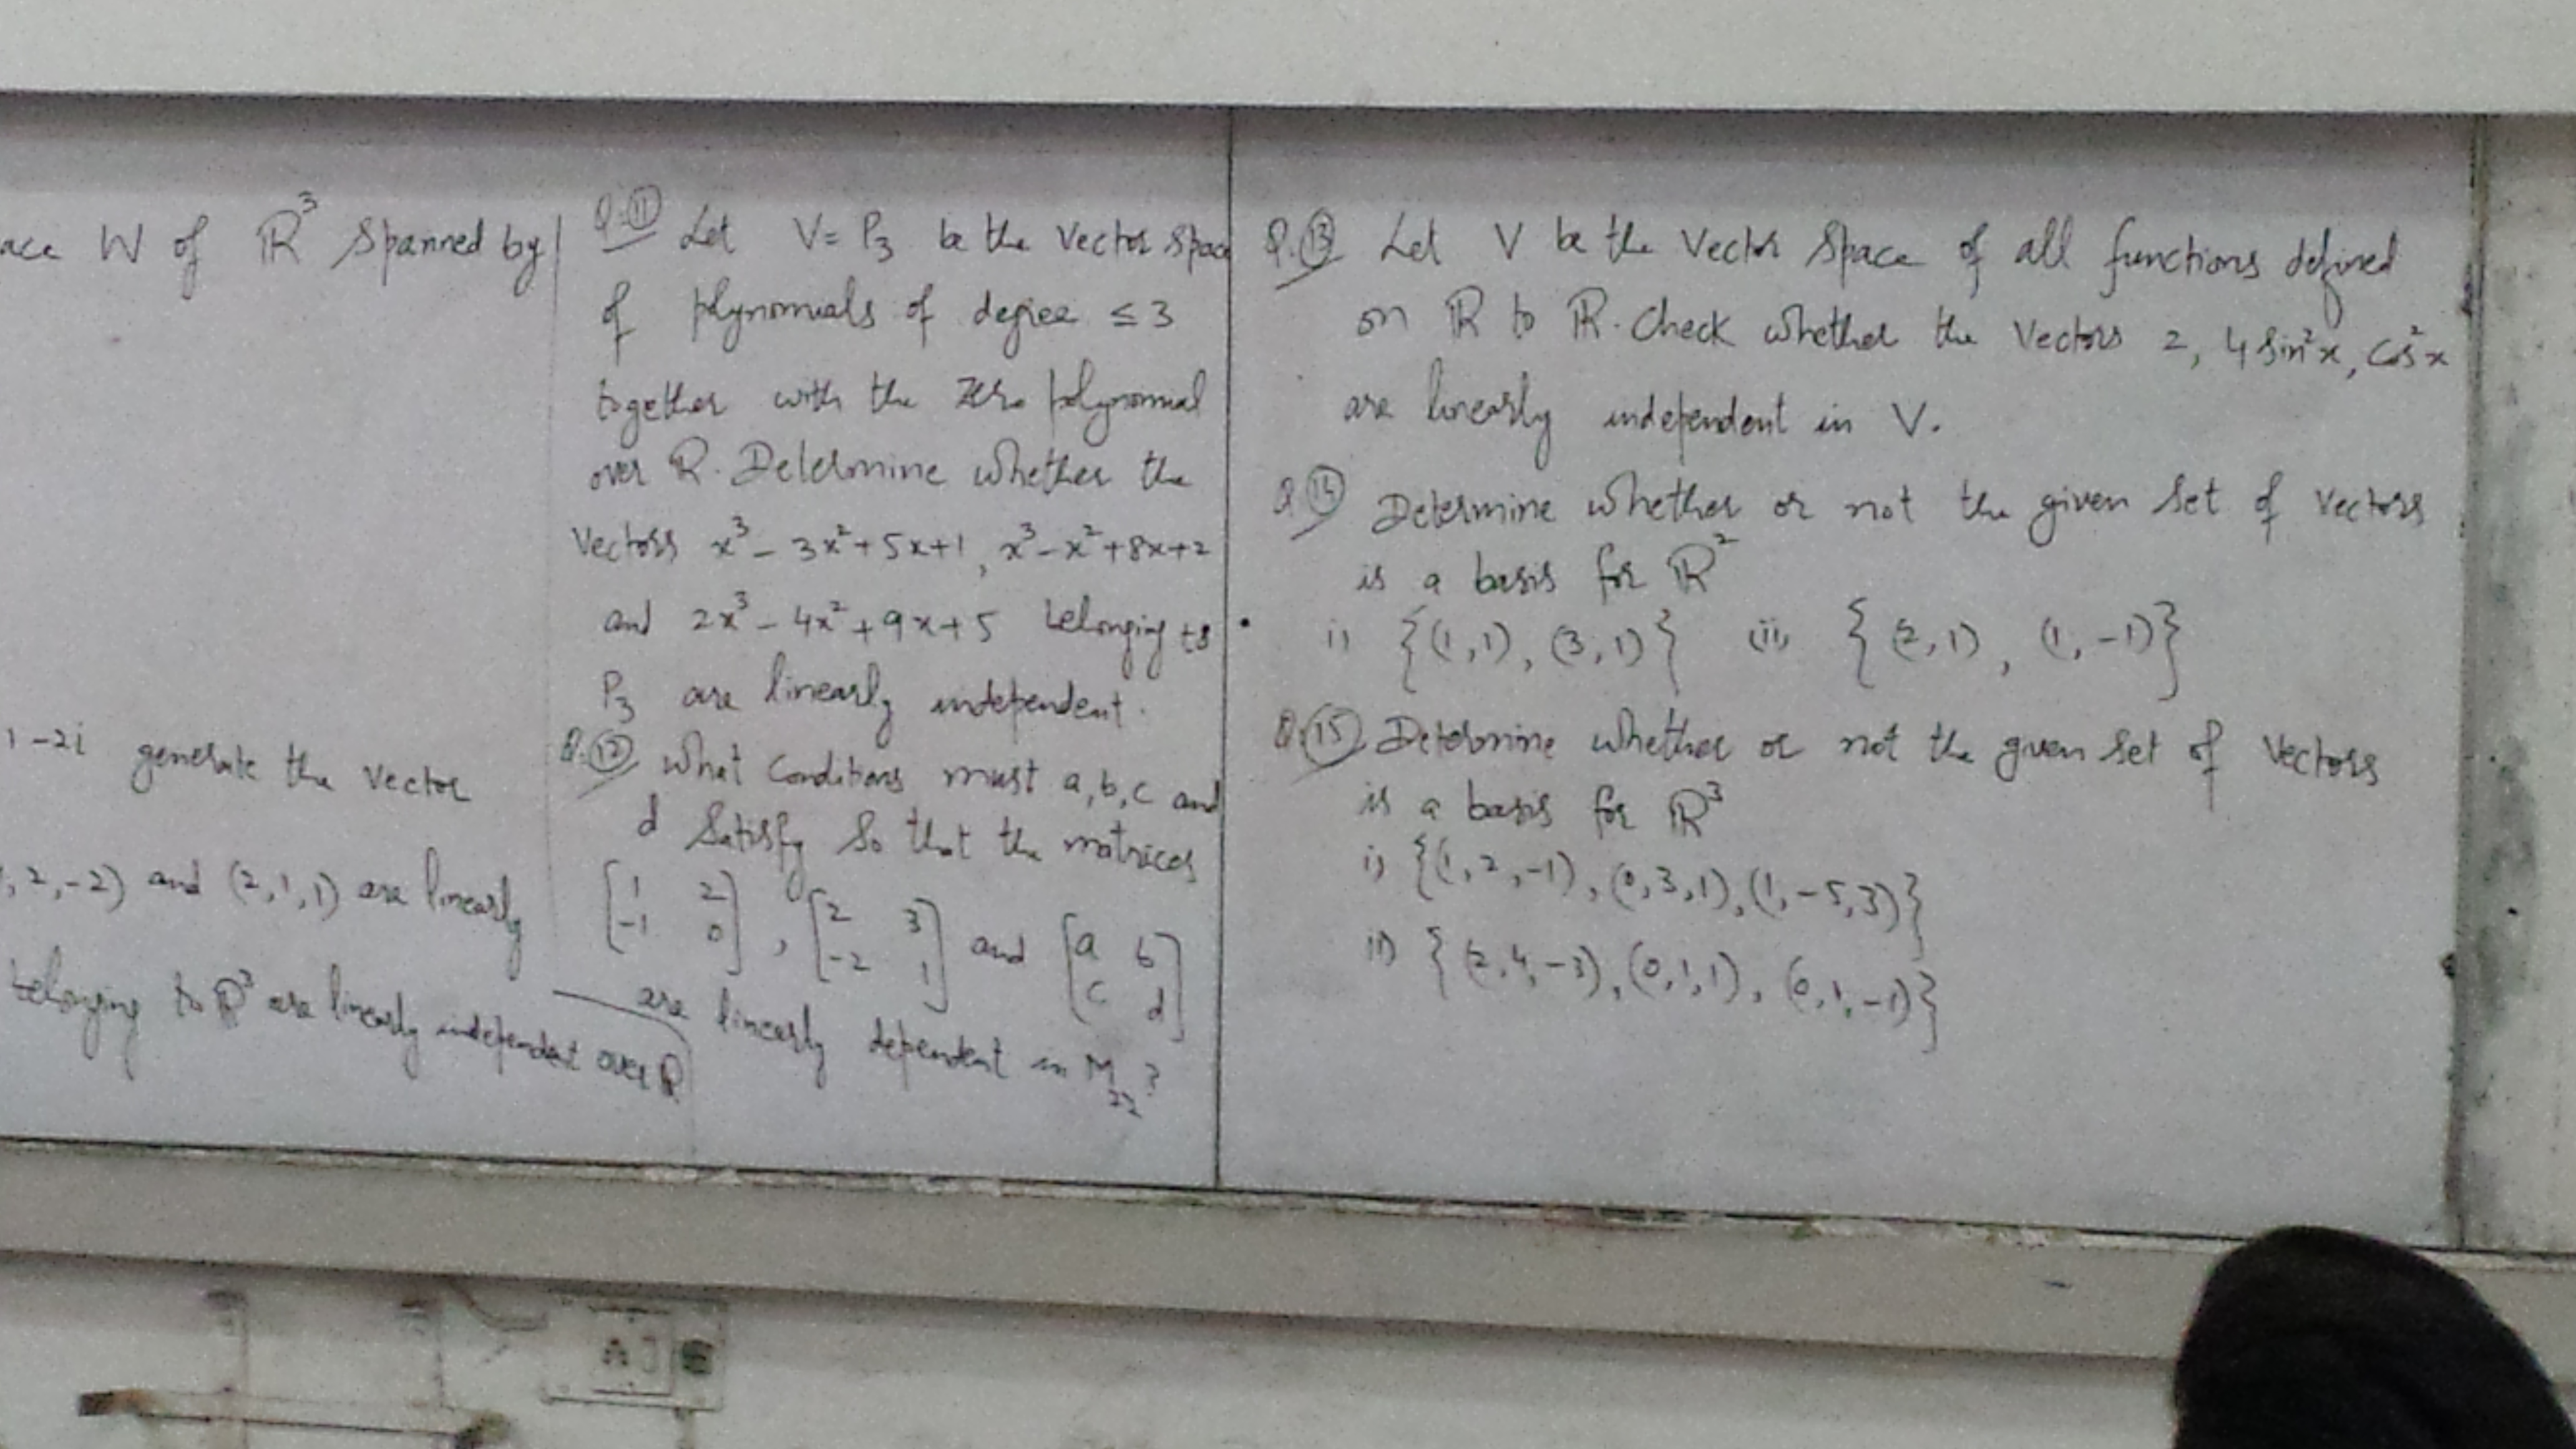 ace W of R³ spanned by
1-2i generate the vector
, 2, -2) and (2, 1, 1) are linearly
belonging to R³ are linearly independent over R
Q.11 Let V = P₃ be the vector space
of polynomials of degree ≤ 3
together with the zero polynomial
over R. Determine whether the
vectors x³ - 3x² + 5x + 1, x³ - x² + 8x + 2
and 2x³ - 4x² + 9x + 5 belonging to
P₃ are linearly independent.
Q.12 What conditions must a, b, c and
d satisfy so that the matrices
[1 2
-1 0], [2 3
-2 1] and [a b
c d]
are linearly dependent in M₂₂?
Q.13 Let V be the vector space of all functions defined
on R to R. Check whether the vectors 2, 4 sin²x, cos²x
are linearly independent in V.
Q.14 Determine whether or not the given set of vectors
is a basis for R²
i) {(1, 1), (3, 1)} (ii) {(2, 1), (1, -1)}
Q.15 Determine whether or not the given set of vectors
is a basis for R³
i) {(1, 2, -1), (0, 3, 1), (1, -5, 3)}
ii) {(2, 4, -3), (0, 1, 1), (0, 1, -1)}